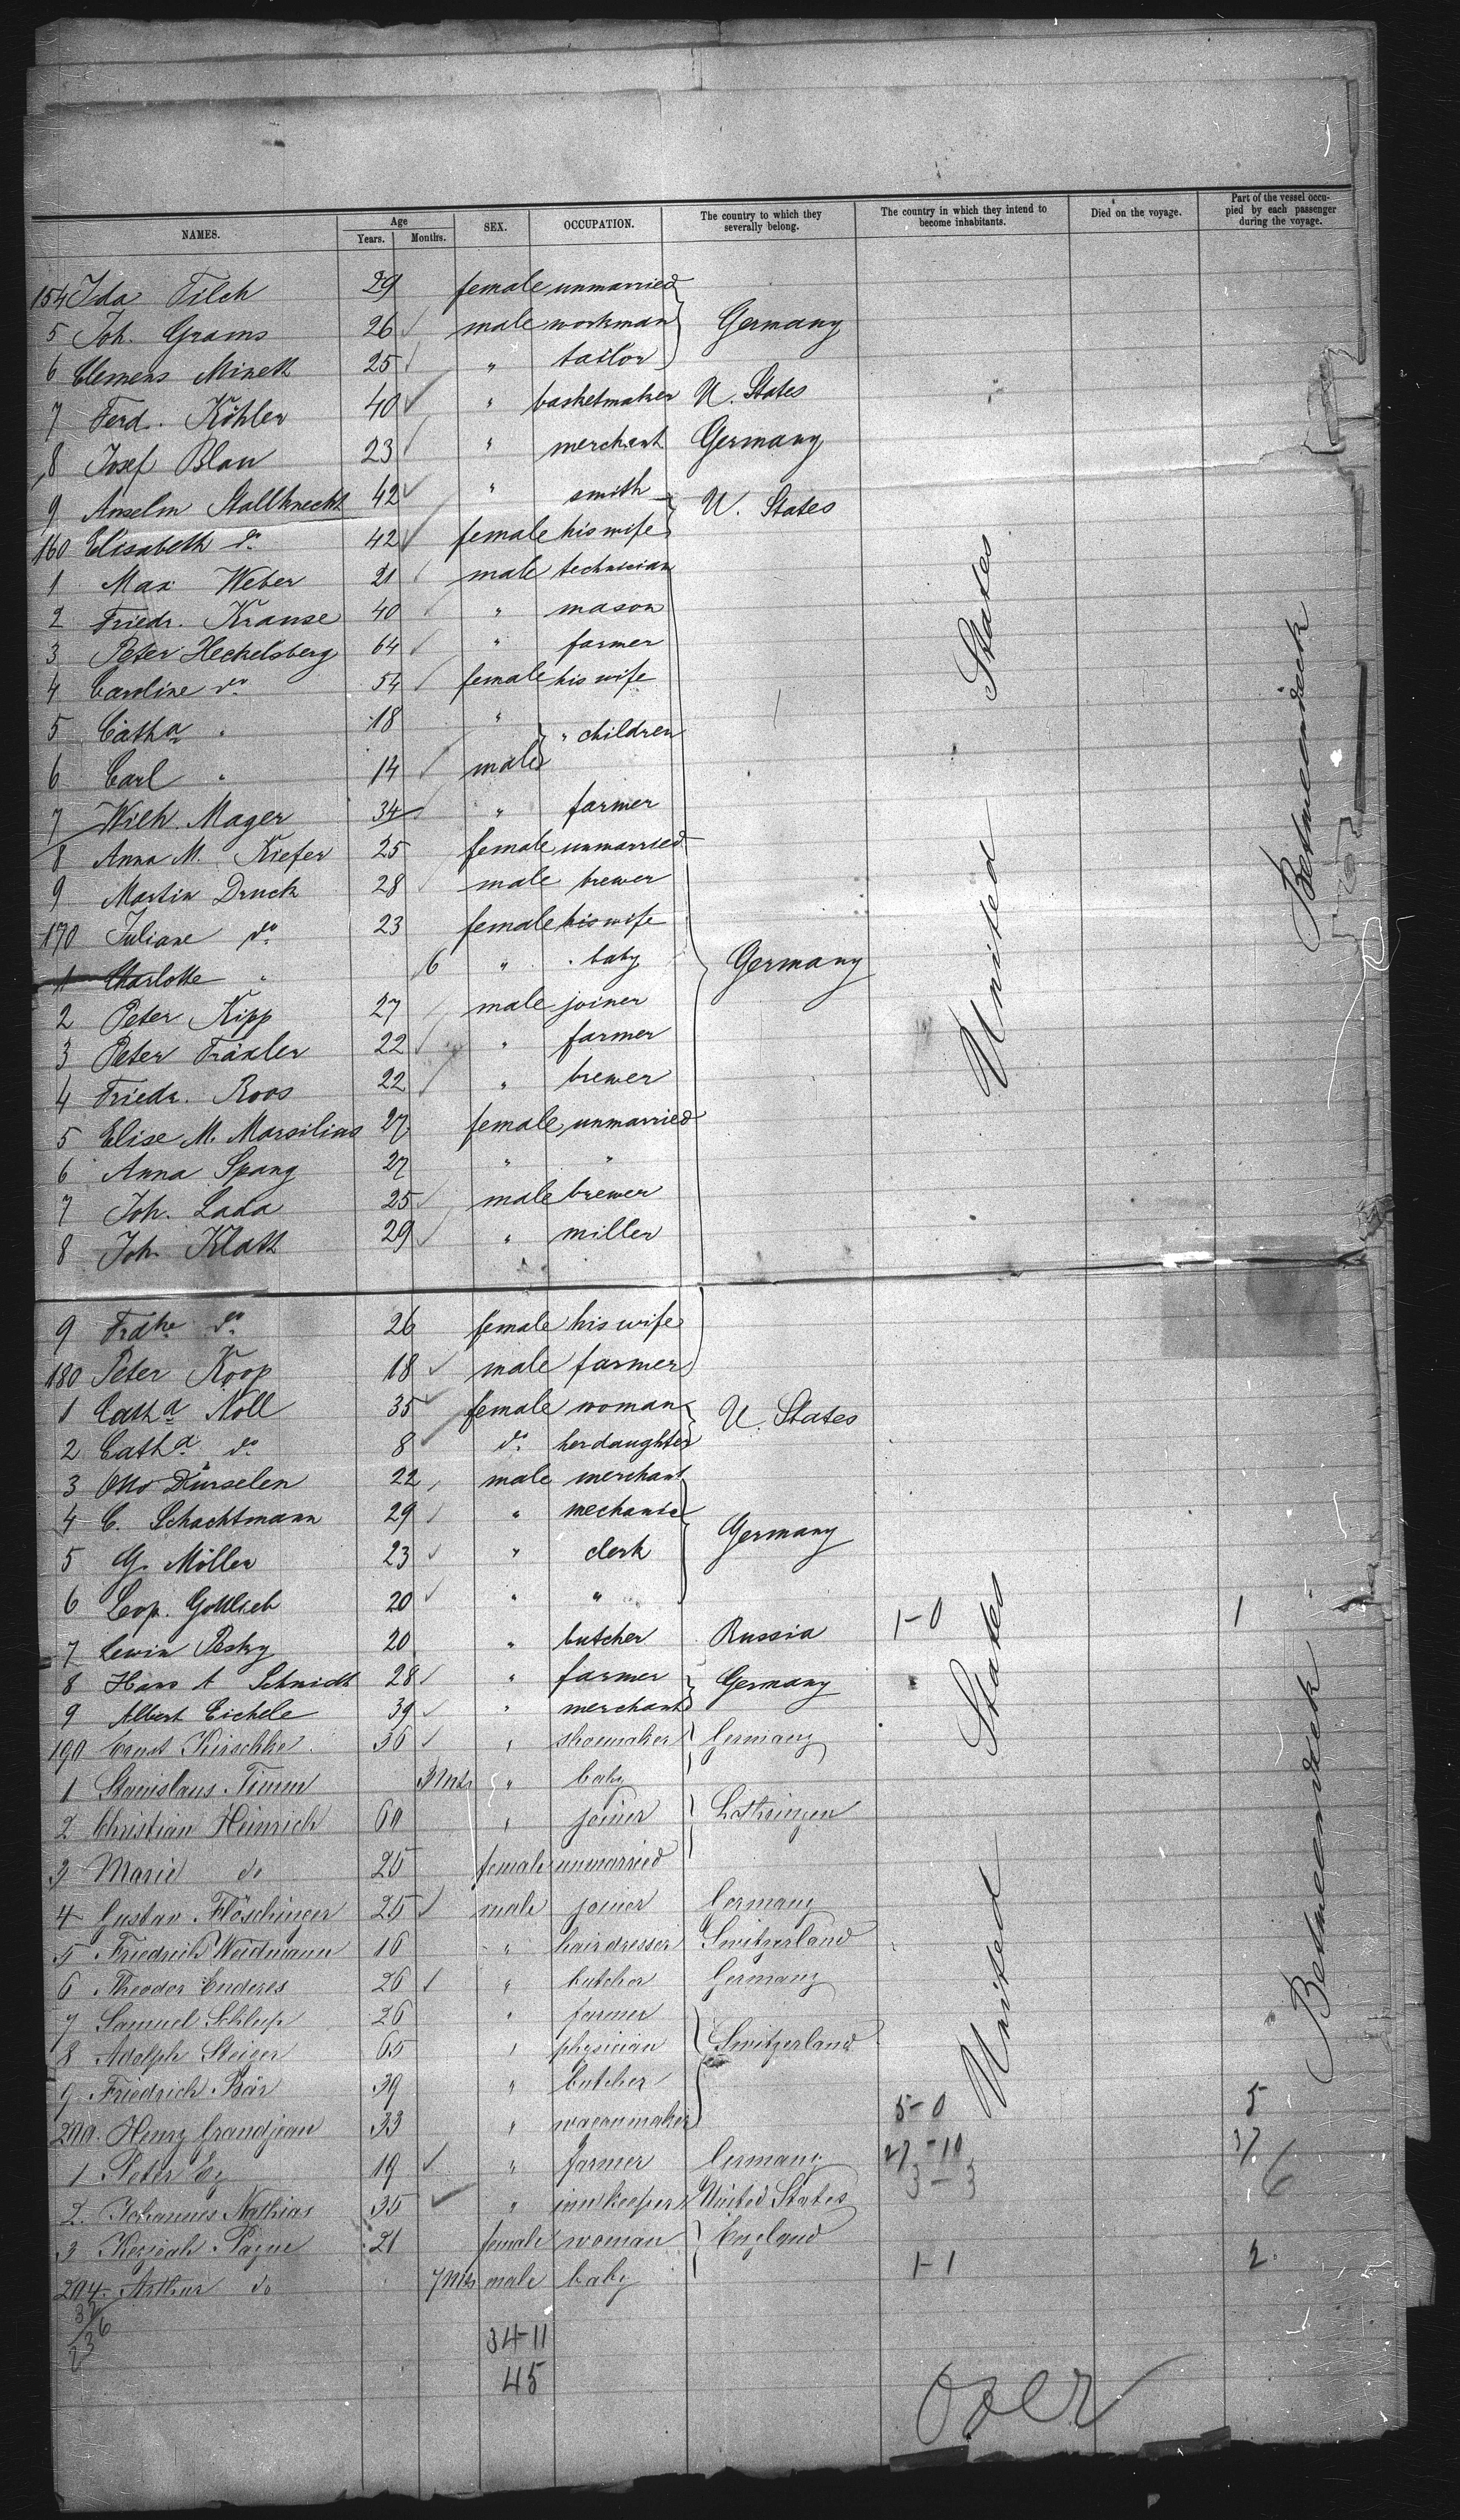 NAMES. Age Years. Months. SEX. OCCUPATION. The country to which they severally belong. The country in which they intend to become inhabitants. Died on the voyage. Part of the vessel occupied by each passenger during the voyage.
154 Ida Tilch 29 female unmarried
5 Joh. Grams 26 male workman Germany
6 Clemens Minett 25 " tailor
7 Ferd. Köhler 40 " basketmaker U. States
8 Josef Blau 23 " merchant Germany
9 Anselm Stallknecht 42 " smith U. States
160 Elisabeth do 42 female his wife
1 Max Weber 21 male technician
2 Friedr. Krause 40 " mason
3 Peter Heckelsberg 64 " farmer
4 Caroline do 54 female his wife
5 Catha " 18 " " children
6 Carl " 14 male
7 Wilh. Mager 34 " farmer
8 Anna M. Kiefer 25 female unmarried
9 Martin Druck 28 male brewer
170 Juliane do 23 female his wife
1 Charlotte " 6 " " baby Germany
2 Peter Kipp 27 male joiner
3 Peter Träxler 22 " farmer
4 Friedr. Roos 22 " brewer
5 Elise M. Marsilius 27 female unmarried
6 Anna Spang 27 " "
7 Joh. Lada 25 male brewer
8 Joh. Klatt 29 " miller
9 Frdke do 26 female his wife
180 Peter Koop 18 male farmer
1 Catha Noll 35 female woman U. States
2 Catha do 8 do her daughter
3 Otto Dürselen 22 male merchant
4 C. Schachtmann 29 " mechanic
5 G. Möller 23 " clerk Germany
6 Leop. Gottlieb 20 " "
7 Lewin Pesky 20 " butcher Russia 1-0 1
8 Hans A Schmidt 28 " farmer Germany
9 Albert Eichele 39 " merchant
190 Ernst Kirschke 36 " shoemaker Germany
1 Stanislaus Timm 3 Mts " baby
2 Christian Heinrich 60 " joiner Lothringen
3 Marie do 25 female unmarried
4 Gustav Flöschinger 25 male joiner Germany
5 Friedrich Weidmann 16 " hairdresser Switzerland
6 Theodor Enderes 26 " butcher Germany
7 Samuel Schlup 26 " farmer
8 Adolph Steiger 65 " physician Switzerland
9 Friedrich Bär 39 " butcher
200. Henry Grandjean 33 " waconmaker 5-0 5
1 Peter Ey 19 " farmer Germany 27-10 37
2. Johannes Nathias 35 " innkeeper United States 3-3 6
3 Keziah Payne 21 female woman England
204. Arthur do 7 Mts male baby 1-1 2
32
236
34-11
45
United States
United States
Betweendeck
Betweendeck
over